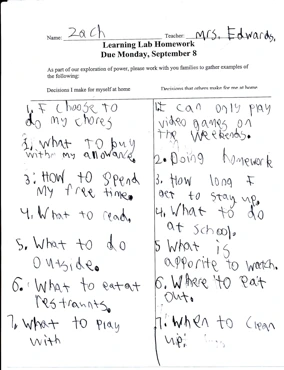 Name: Zach Teacher: Mrs. Edwards,
Learning Lab Homework
Due Monday, September 8
As part of our exploration of power, please work with you families to gather examples of
the following:
Decisions I make for myself at home
1. I choose to
do my chores
2, what TO buy
with my allowance.
3: How to Spend
My free time.
4. What to read.
5. What to do
Outside.
6. What to eat at
restraunts.
7. What to play
with
Decisions that others make for me at home
1. I can only play
video games on
the weekends.
2. Doing homework
3. How long I
get to stay up.
4. What to do
at School.
5 What is
apporite to watch.
6. Where to eat
out.
7. When to clean
up.